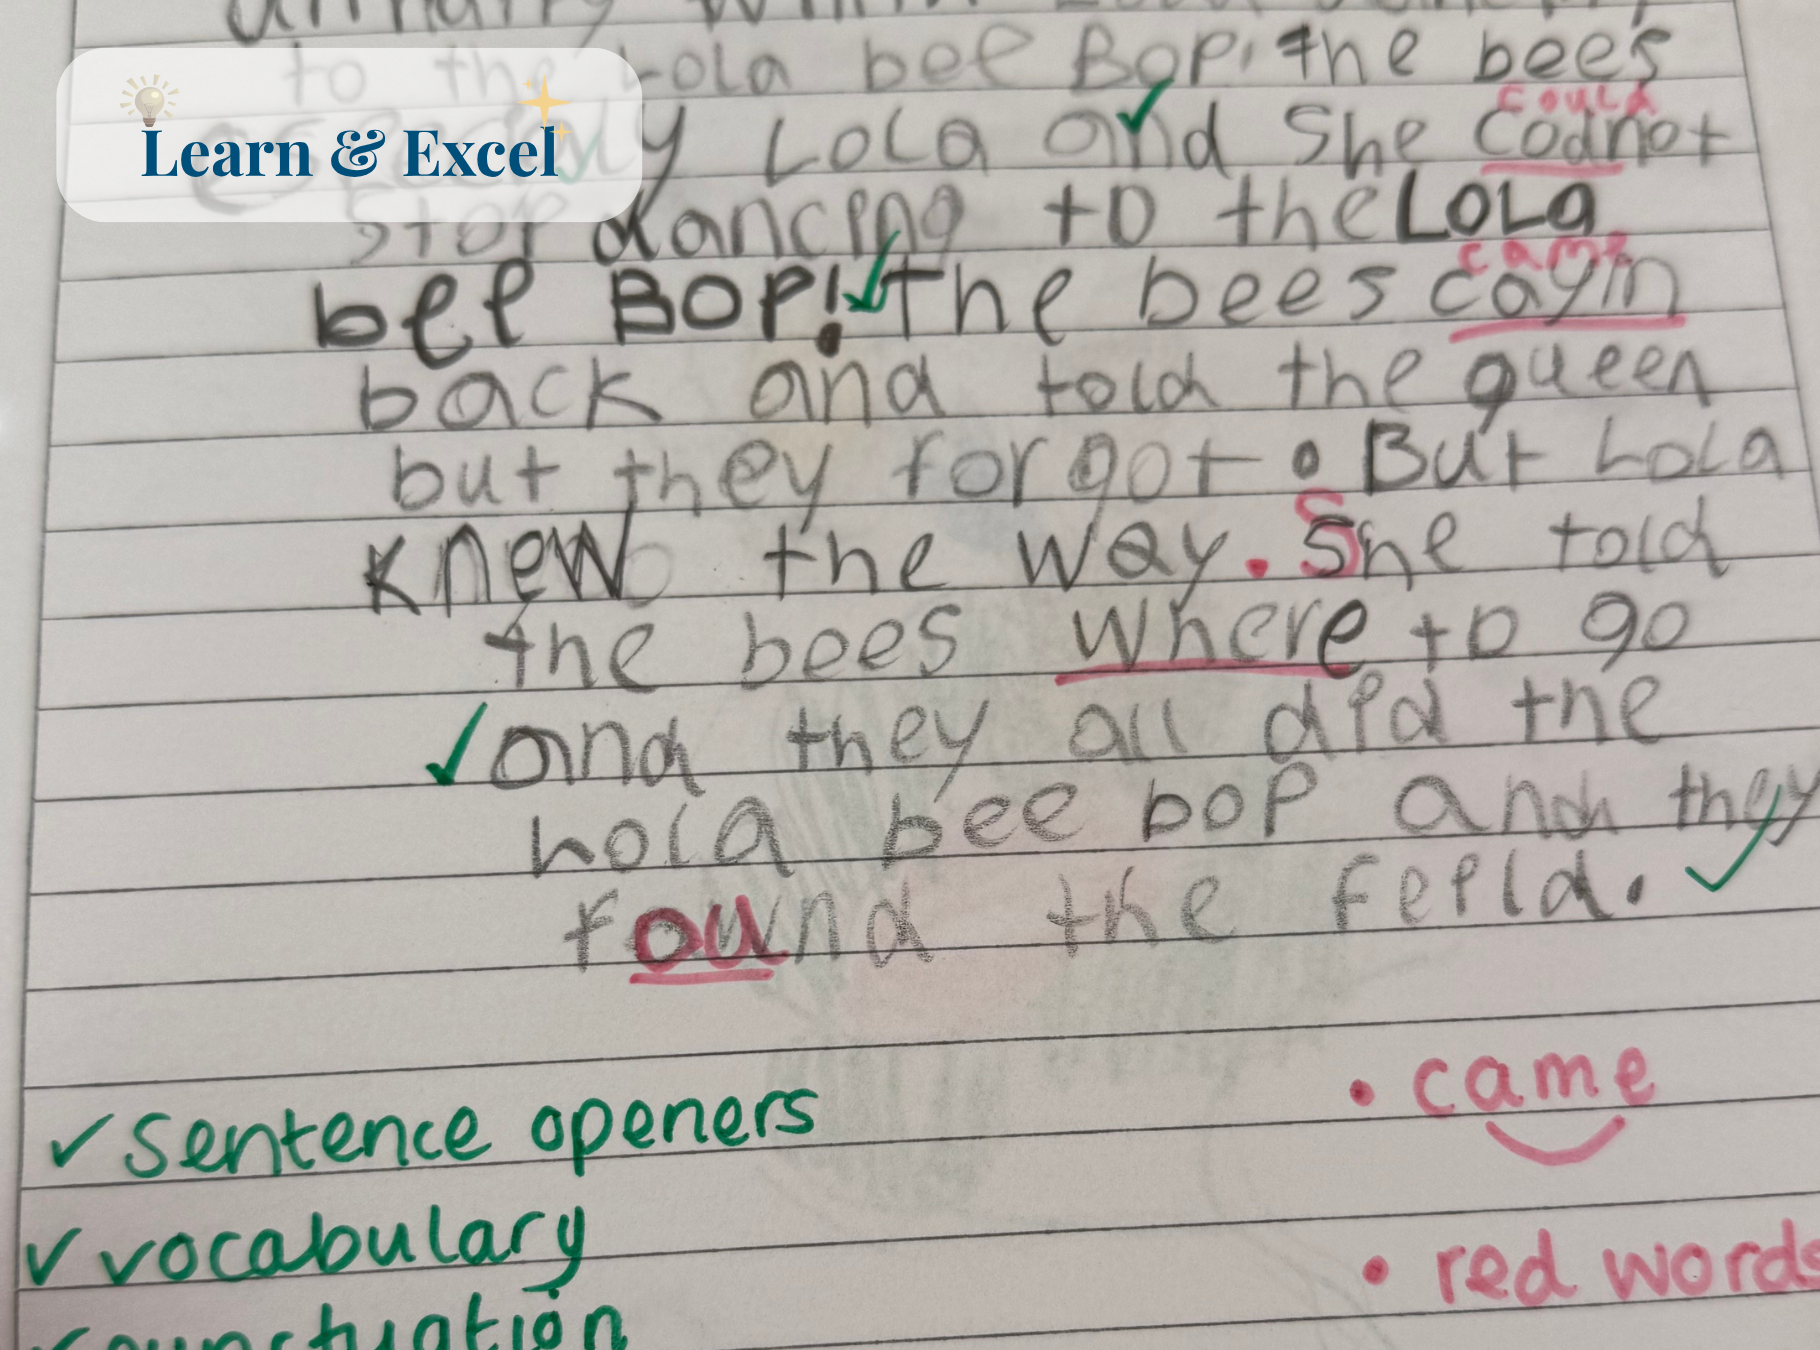 to the Lola bee Bop, the bees
Learn & Excel
could
y Lola and She codnot
stop dancing to the Lola
came
bee BOP! the bees cagin
back and told the queen
but they forgot. But Lola
knew the way. She told
the bees where to go
and they all did the
Lola bee bop and they
found the feild.
✓ sentence openers
• came
✓ vocabulary
• red words
✓ punctuation